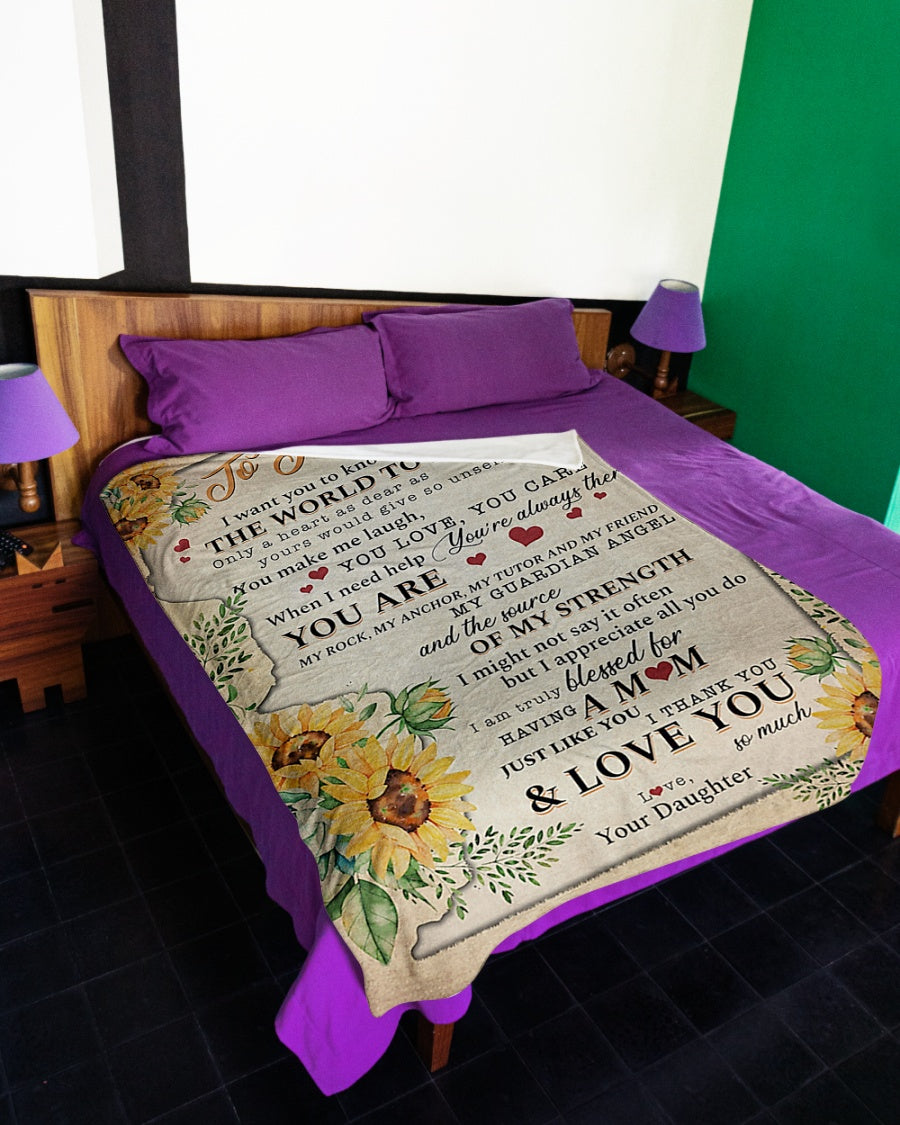 To
I want you to know
THE WORLD TO
Only a heart as dear as
yours would give so
You make me laugh,
YOU LOVE, YOU CARE
When I need help You're always there
YOU ARE
MY ROCK, MY ANCHOR, MY TUTOR AND MY FRIEND
MY GUARDIAN ANGEL
and the source
OF MY STRENGTH
I might not say it often
but I appreciate all you do
I am truly blessed for
HAVING A MOM
JUST LIKE YOU I THANK YOU
& LOVE YOU
so much
Love,
Your Daughter